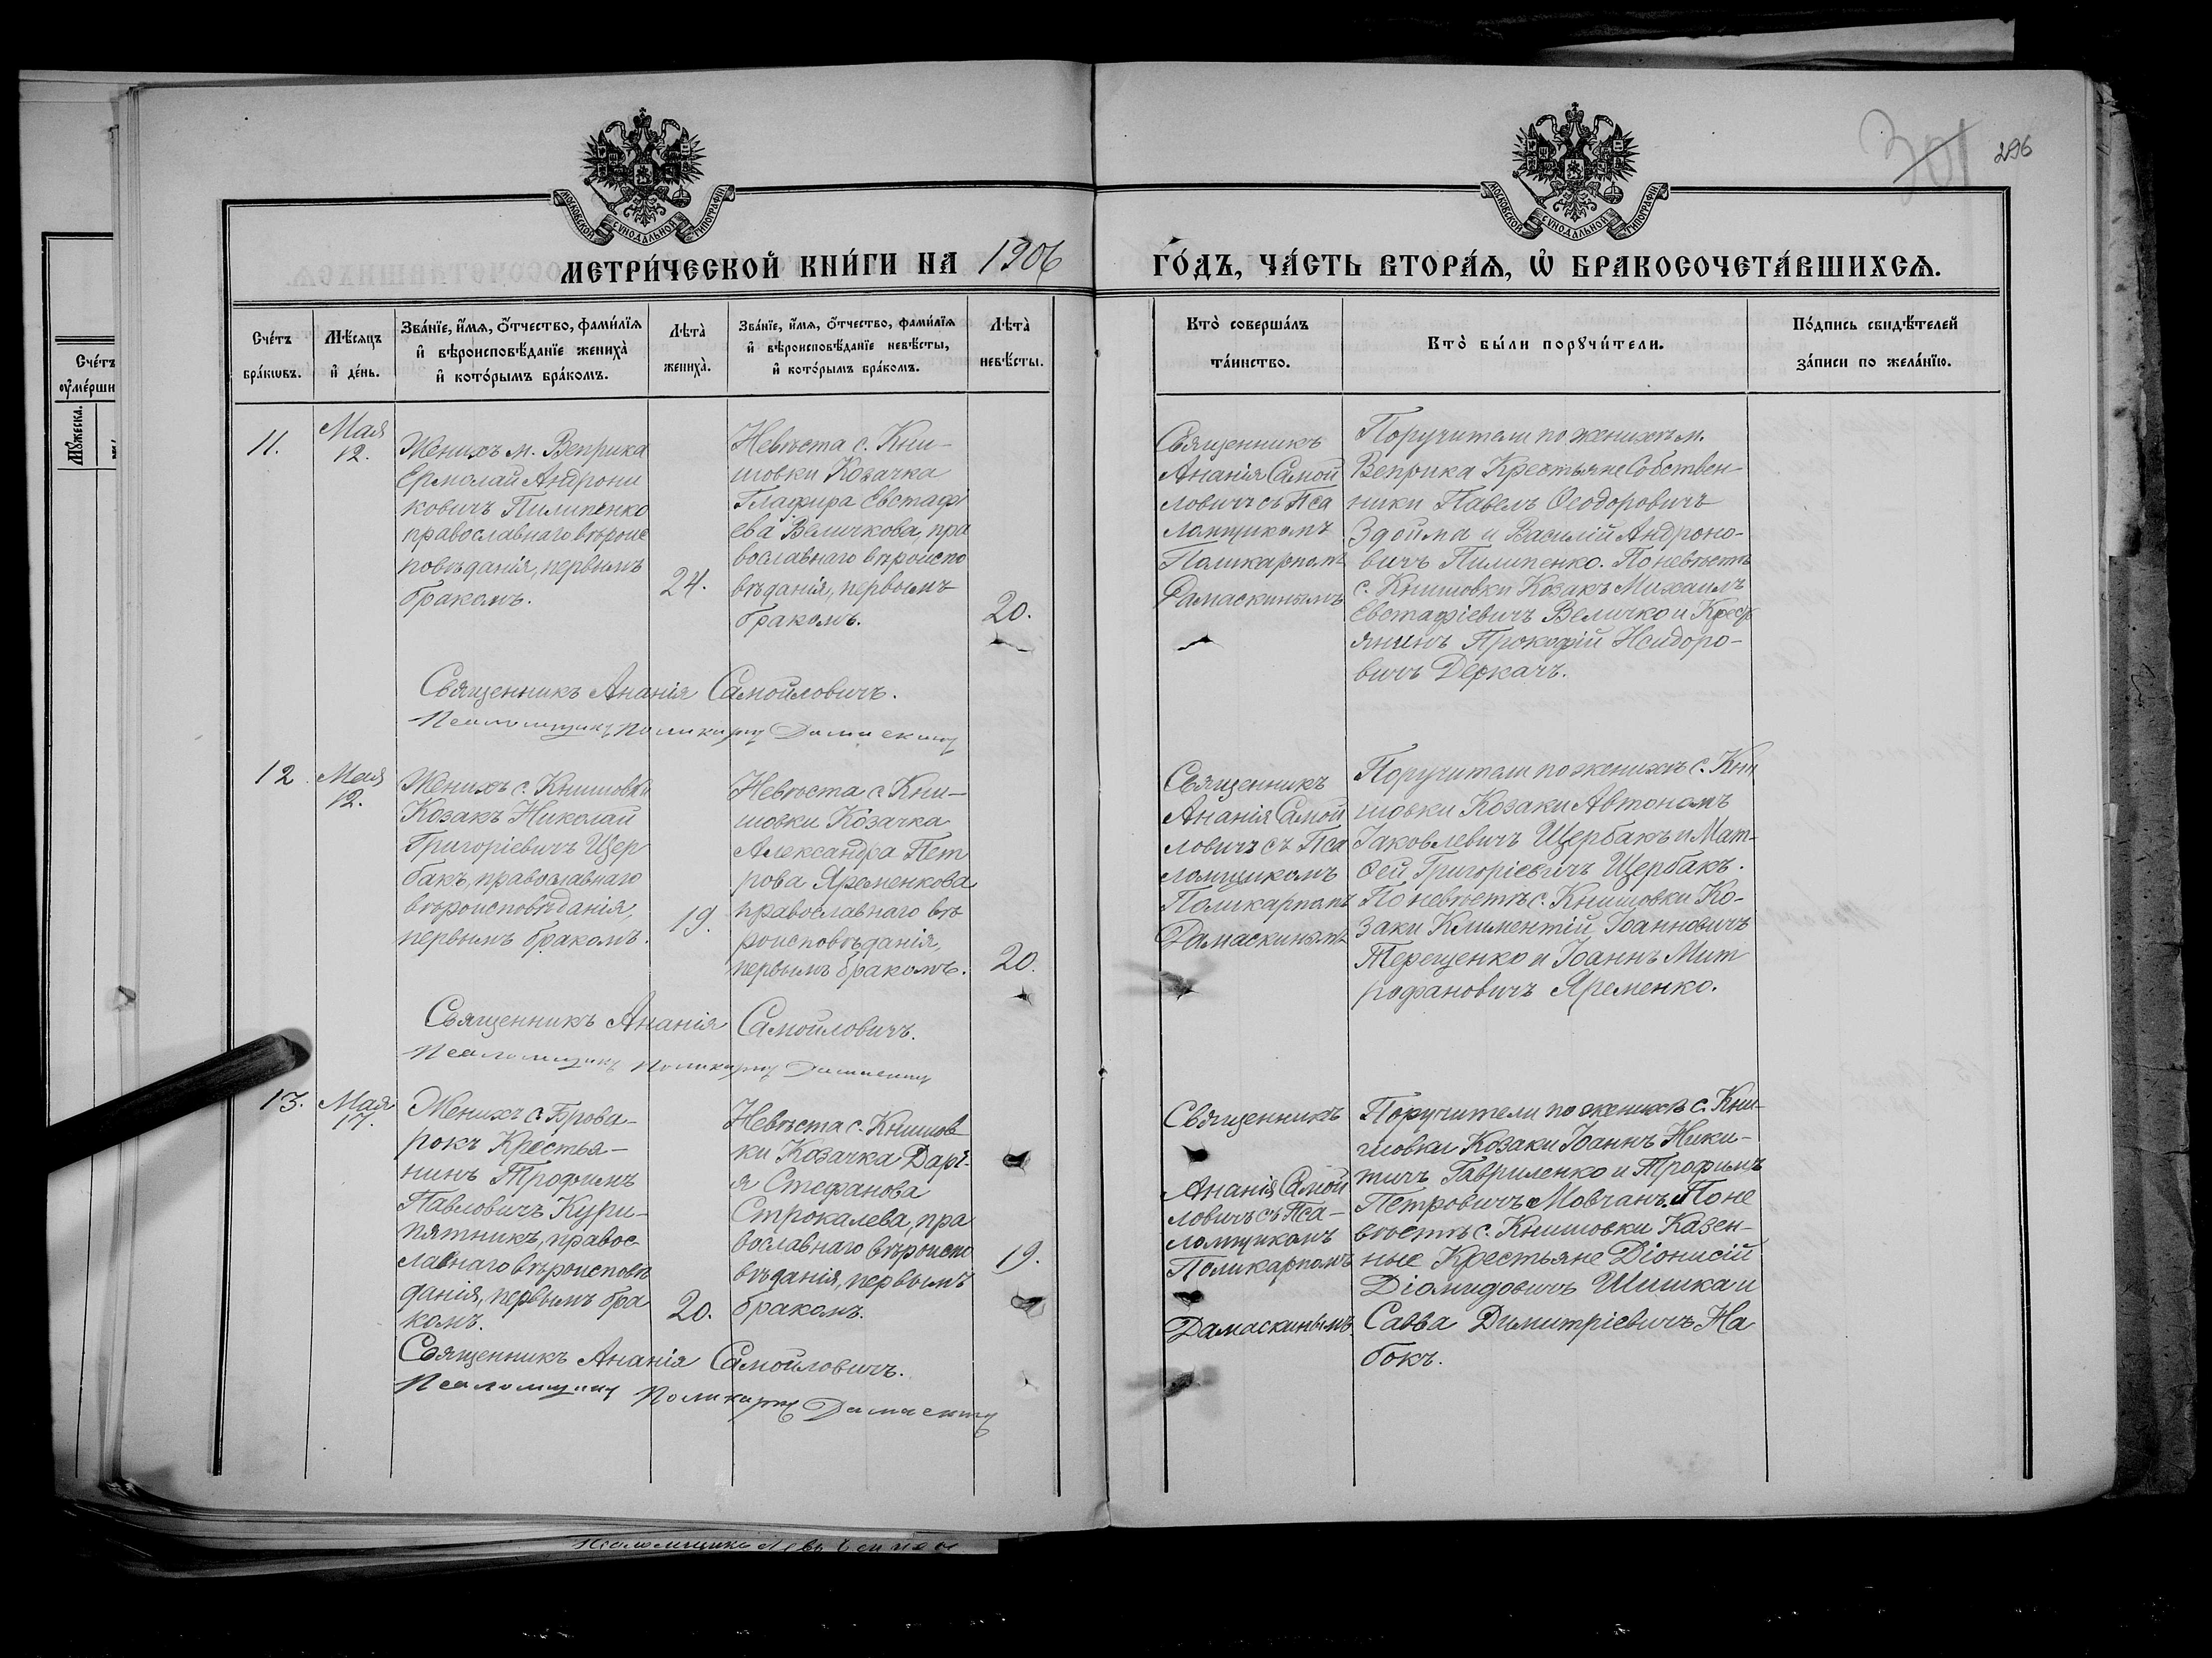 301 296
МОСКОВСКОЙ СѴНОДАЛЬНОЙ ТИПОГРАФІИ
МОСКОВСКОЙ СѴНОДАЛЬНОЙ ТИПОГРАФІИ
МЕТРИ́ЧЕСКОЙ КНИ́ГИ НА 1906
ГО́ДЪ, ЧА́СТЬ ВТОРА́Ѧ, Ѡ҆ БРАКОСОЧЕТА́ВШИХСѦ.
Сче́тъ
бра́кѡвъ.
Мѣ́сяцъ
и҆ де́нь.
Зва́нїе, и҆́мѧ, ѻ҆́тчество, фами́лїѧ
и҆ вѣроисповѣ́данїе жениха̀
и҆ кото́рымъ бра́комъ.
Лѣта̀
жениха̀.
Зва́нїе, и҆́мѧ, ѻ҆́тчество, фами́лїѧ
и҆ вѣроисповѣ́данїе невѣ́сты,
и҆ кото́рымъ бра́комъ.
Лѣта̀
невѣ́сты.
Кто̀ соверша́лъ
та́инство.
Кто̀ бы́ли порꙋчи́тели.
По́дпись свидѣ́телей
за́писи по жела́нїю.
Сче́тъ
ᲂу҆ме́рши
Мꙋ́жеска.
11.
Мая
12.
Женихъ м. Веприка
Ермолай Андрони
ковичъ Пилипенко
православнаго вѣроис
повѣданія, первымъ
бракомъ.
24.
Невѣста с. Кни-
шовки Козачка
Глафира Евстафі
ева Величкова, пра
вославнаго вѣроиспо
вѣданія, первымъ
бракомъ.
20.
Священникъ
Ананія Самой
ловичъ съ Пса
ломщикомъ
Поликарпомъ
Дамаскинымъ
Поручители по женихѣ м.
Веприка Крестьяне Собствен-
ники Павелъ Ѳеодоровичъ
Здойма и Василій Андроно-
вичъ Пилипенко. По невѣстѣ
с. Книшовки Козакъ Михаилъ
Евстафіевичъ Величко и Крест
янинъ Прокофій Исидоро-
вичъ Деркачъ.
Священникъ Ананія Самойловичъ.
Псаломщикъ Поликарпъ Дамаскинъ
12
Мая
12.
Женихъ с. Книшовки
Козакъ Николай
Григоріевичъ Щер
бакъ, православнаго
вѣроисповѣданія,
первымъ бракомъ.
19.
Невѣста с. Кни-
шовки Козачка
Александра Пет
рова Яременкова
православнаго вѣ
роисповѣданія,
первымъ бракомъ.
20.
Священникъ
Ананія Самой
ловичъ съ Пса
ломщикомъ
Поликарпомъ
Дамаскинымъ
Поручители по женихѣ с. Кни
шовки Козаки Автономъ
Іаковлевичъ Щербакъ и Мат-
ѳей Григоріевичъ Щербакъ.
По невѣстѣ с. Книшовки Ко-
заки Климентій Іоанновичъ
Терещенко и Іоаннъ Мит
рофановичъ Яременко.
Священникъ Ананія Самойловичъ.
Псаломщикъ Поликарпъ Дамаскинъ
13.
Мая
17.
Женихъ с. Брова-
рокъ Крестья-
нинъ Трофимъ
Павловичъ Кури-
пятникъ, правос-
лавнаго вѣроисповѣ
данія, первымъ бра
комъ.
20.
Невѣста с. Книшов-
ки Козачка Дарі-
я Стефанова
Строкалева, пра
вославнаго вѣроиспо
вѣданія, первымъ
бракомъ.
19.
Священникъ
Ананія Самой
ловичъ съ Пса-
ломщикомъ
Поликарпомъ
Дамаскинымъ.
Поручители по женихѣ с. Кни-
шовки Козаки Іоаннъ Ники-
тичъ Гавриленко и Трофимъ
Петровичъ Мовчанъ. По не
вѣстѣ с. Книшовки Казен-
ные Крестьяне Діонисій
Діомидовичъ Шишка и
Савва Димитріевичъ На
бокъ.
Священникъ Ананія Самойловичъ.
Псаломщикъ Поликарпъ Дамаскинъ